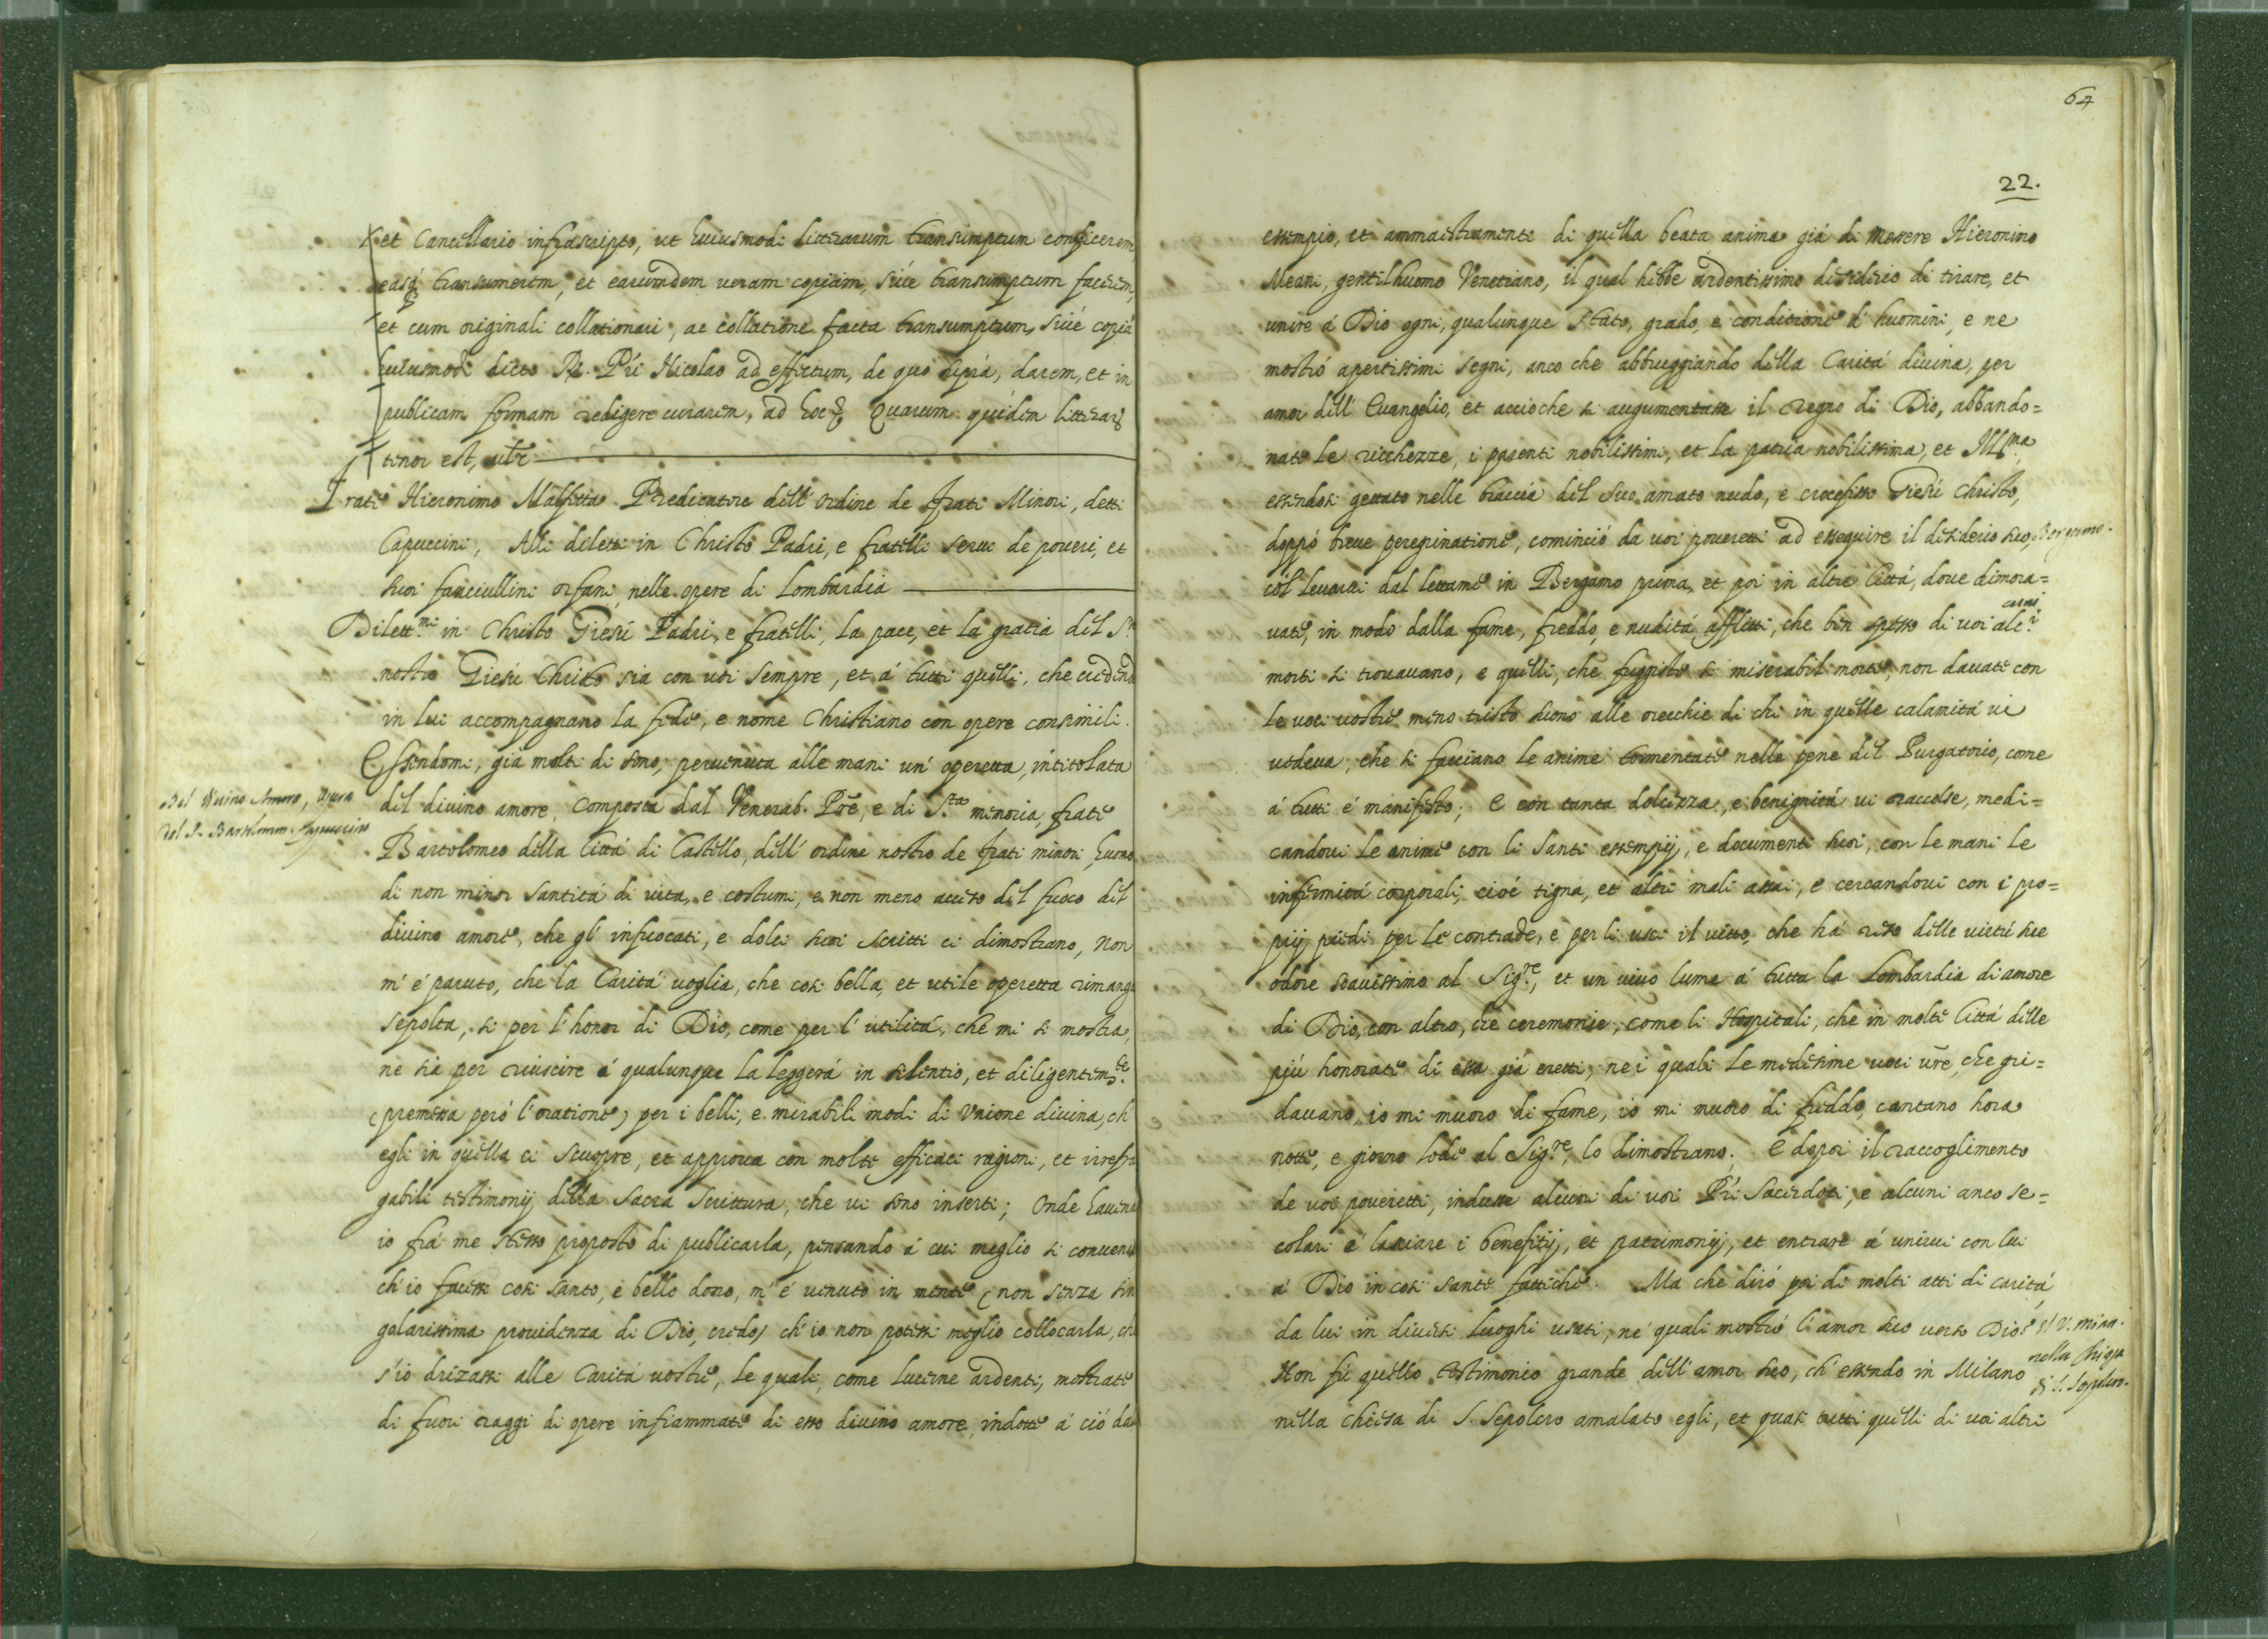 et Cancellario infrascripto, ut huiusmodi litterarum transumptum conficerem,
easq. transumerem, et earumdem veram copiam, sive transumptum facerem,
et cum originali collationari, ac collatione facta transumptum, sivé copiã
huiusmodi dicto R. P.ri Nicolao ad effectum, de quo suprá, darem, et in
publicam formam redigere curarem, ad hoc &. Quarum quidem litterar
tenor est, ut
Frate Hieronimo Malfetta Predicatore dell' ordine de frati Minori, detti
Capuccini, Alli diletti in Christo Padri, e fratelli servi de poveri, et
suoi fanciullini orfani, nelle opere di Lombardia
Dilett.mi in Christo Giesú Padri, e fratelli, la pace, et la gratia del S.r
nostro Giesú Christo sia con voi sempre, et á tutti quelli, che credendo
in lui accompagnano la fede, e nome Christiano con opere consimili.
Essendomi, giá molti di sono, pervenuta alle mani un' operetta, intitolata
Del Divino Amore, Opera
del P. Bartolomeo Capuccino
dil divino amore, composta dal Venerab. Prẽ, e di S.ta memoria, frate
Bartolomeo della Cittá di Castello, dell' ordine nostro de frati minori, huomo
di non minor santitá di vita, e costumi, e non meno acceso del fuoco del
divino amore, che gl' infuocati, e dolci suoi scritti ci dimostrano, Non
m' é paruto, che la Caritá voglia, che cosi bella, et utile operetta rimanga
sepolta, si per l' honor di Dio, come per l' utilitá, che mi si mostra,
ne sia per riuscire á qualunque la leggerá in silentio, et diligentem.te
(premessa peró l' oratione) per i belli, e mirabili modi di Unione divina, ch'
egli in quella ci scuopre, et approva con molte efficaci ragioni, et irrefra
gabili testimonij della Sacra Scrittura, che vi sono inserti; Onde havend
io frá me stesso proposto di publicarla, pensando á cui meglio si conveni
ch' io facessi cosi santo, e bello dono, m' é venuto in mente (non senza sin
golarissima providenza di Dio, credo) ch' io non potessi meglio collocarla, che
s' io drizassi alle Caritá vostre, le quali, come lucerne ardenti, mostrate
di fuori raggi di opere infiammate di esso divino amore, indotte á ció dal
64
22.
essempio, et ammaestramenti di quella beata anima giá di messere Hieronino
Meani, gentilhuomo Venetiano, il qual hebbe ardentissimo desiderio di tirare, et
unire á Dio ogni, qualunque stato, grado, e conditione d' huomini, e ne
mostró apertissimi segni, anco che abbruggiando della Caritá divina, per
amor dell' Evangelio, et accioche si augumentasse il regno di Dio, abbando=
nate le ricchezze, i parenti nobilissimi, et la patria nobilissima, et Ill.ma,
essendosi gettato nelle braccia del suo amato nudo, e crocefisso Giesú Christo,
doppó breve peregrinatione, cominció da voi poveretti ad esseguire il desiderio suo, Bergamo.
col levarvi dal lettame in Bergamo prima, et poi in altre Cittá, dove dimora=
vate, in modo dalla fame, freddo, e nuditá afflitti, che ben spesso di voi alc.i cuni
morti si trovavano, e quelli, che fuggiste si miserabil morte, non davate con
le voci vostre meno tristo suono alle orecchie di chi in quelle calamitá vi
vedeva, che si facciano le anime tormentate nelle pene del Purgatorio, come
á tutti é manifesto; E con tanta dolcezza, e benignitá vi raccolse, medi=
candovi le anime con li santi essempij, e documenti suoi, con le mani le
infirmitá corporali, cioé tigna, et altri mali assai, e cercandovi con i pro=
prij piedi per le contrade, e per li usci il vitto, che há reso delle virtú sue
odore soavissimo al Sig.re, et un vivo lume á tutta la Lombardia di amore
di Dio, con altro, che ceremonie, come li Hospitali, che in molte Cittá delle
piú honorate di essa giá eretti, ne i quali le medesime voci vr̃e, che gri=
davano, io mi muoro di fame, io mi muoro di freddo, cantano hora
notte, e giorno lode al Sig.re, lo dimostrano. E dopoi il raccoglimento
de voi poveretti, indusse alcuni di voi P.ri Sacerdoti, e alcuni anco se=
colari á lasciare i benefitij, et patrimonij, et entrare á unirvi con lui
á Dio in cosi sante fattiche. Ma che diró poi di molti atti di caritá,
da lui in diversi luoghi usati, ne' quali mostró l' amor suo verso Dio?
Non fú quello testimonio grande dell' amor suo, ch' essendo in Milano
nella Chiesa
di S. Sepolcro.
nella chiesa di S. Sepolcro amalato egli, et quasi tutti quelli di voi altri